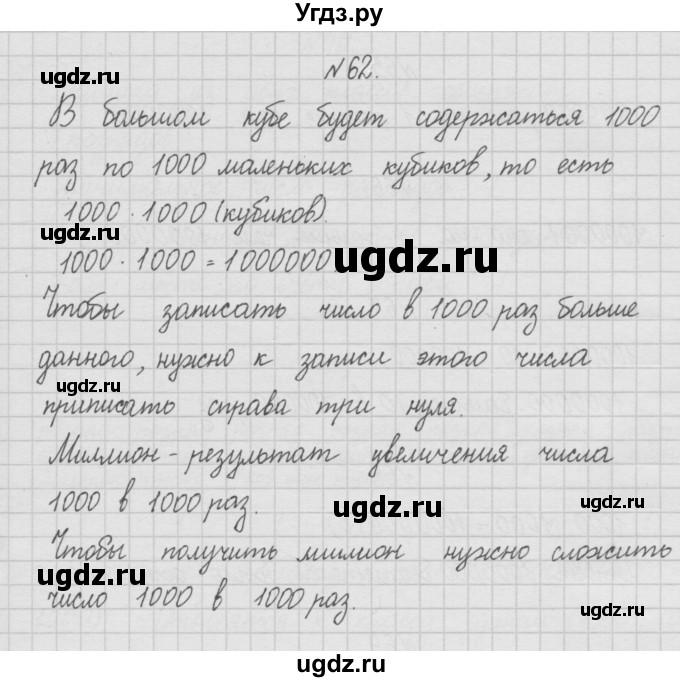 Угдз.ру
ugdz.ru
№62.
ugdz.ru
В большом кубе будет содержаться 1000
раз по 1000 маленьких кубиков, то есть
1000 · 1000 (кубиков).
ugdz.ru
1000 · 1000 = 1000000
ugdz.ru
Чтобы записать число в 1000 раз больше
данного, нужно к записи этого числа
ugdz.ru
приписать справа три нуля.
Миллион - результат увеличения числа
1000 в 1000 раз.
ugdz.ru
ugdz.ru
Чтобы получить милион нужно сложить
ugdz.ru
число 1000 в 1000 раз.
ugdz.ru
ugdz.ru